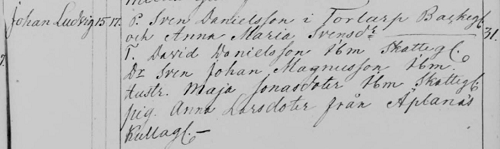 Johan Ludvig 15 17. P. Sven Danielsson i Tortarp Backeg. 31.
och Anna Maria Svensdr
T. David Danielsson ibm Skatteg.
Dr Sven Johan Magnusson ibm.
Hustr. Maja Jonasdoter ibm Skatteg
pig. Anna Larsdoter från Aplanäs
Kullag.